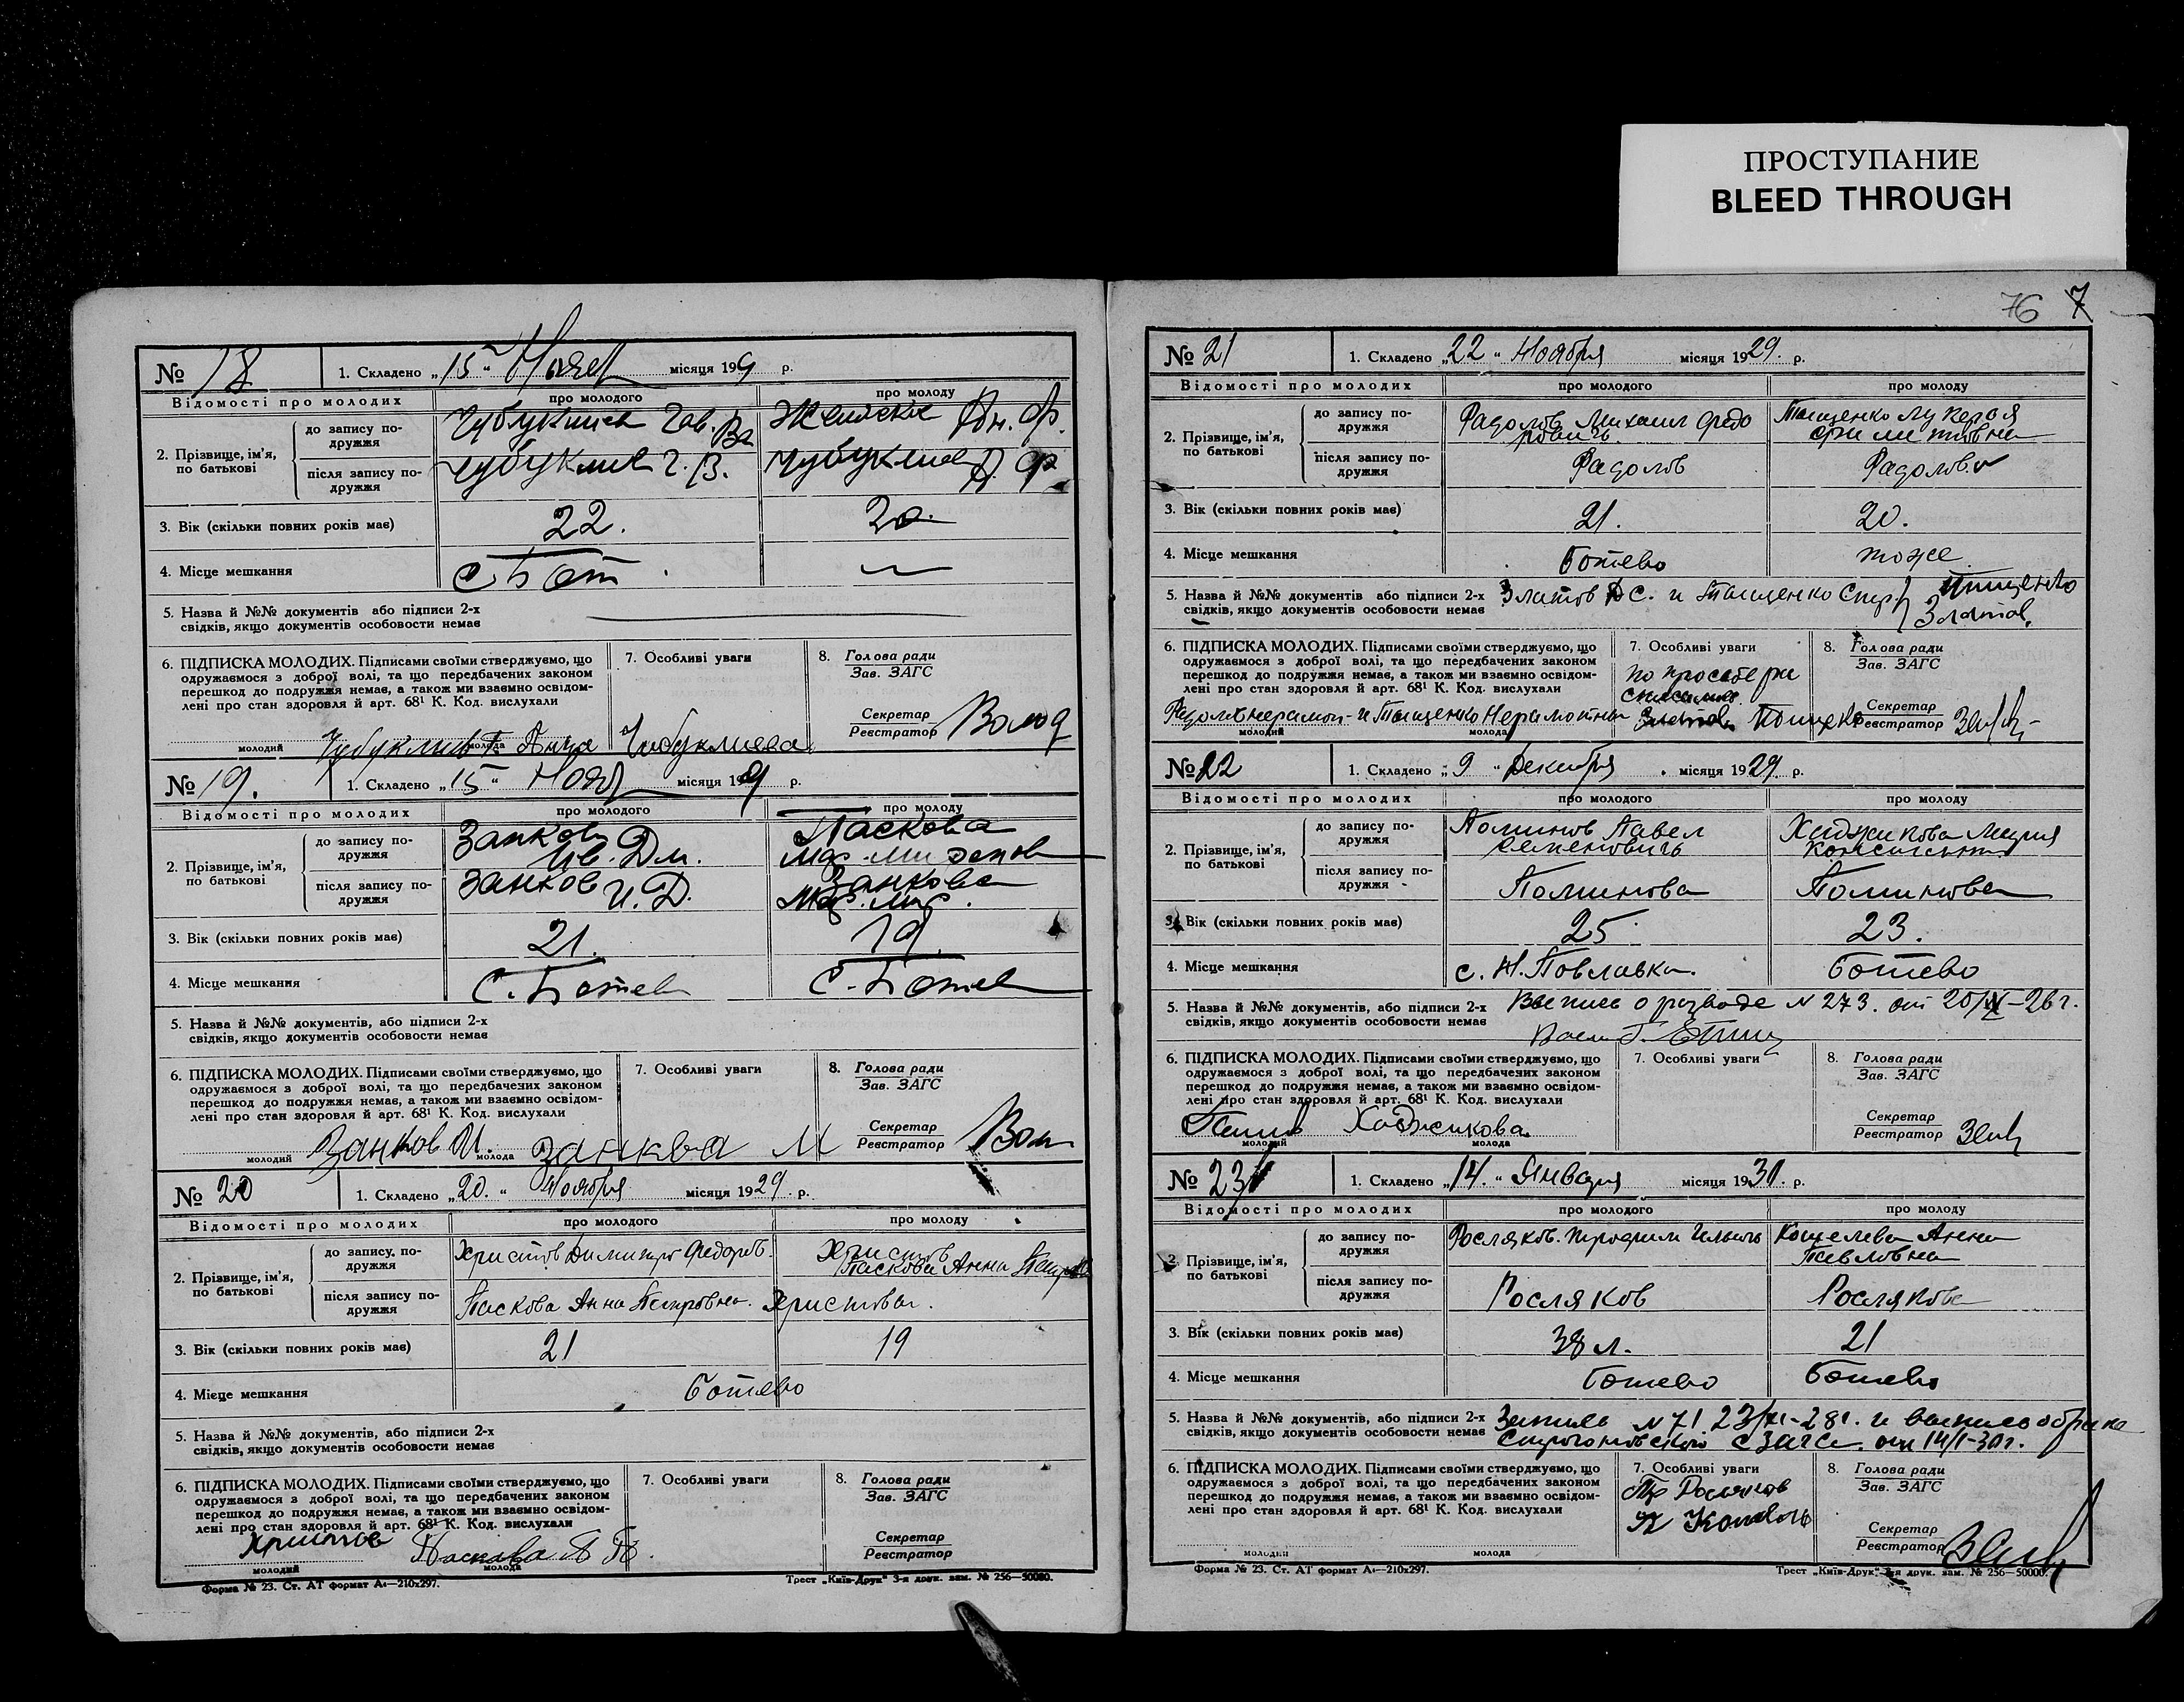 ПРОСТУПАНИЕ
BLEED THROUGH
76 7
№ 18 1. Складено „15“ Нояб місяця 199 р.
Відомості про молодих про молодого про молоду
2. Прізвище, ім'я, по батькові
до запису подружжя Чубуклиев Гав. Ва Ан. Ф.
після запису подружжя Чубуклиев Г. В. Чубуклиев А. Ф.
3. Вік (скільки повних років має) 22. 20.
4. Місце мешкання С. Бот
5. Назва й №№ документів або підписи 2-х
свідків, якщо документів особовости немає
6. ПІДПИСКА МОЛОДИХ. Підписами своїми стверджуємо, що
одружаємося з доброї волі, та що передбачених законом
перешкод до подружжя немає, а також ми взаємно освідом-
лені про стан здоровля й арт. 68¹ К. Код. вислухали
7. Особливі уваги
8. Голова ради
Зав. ЗАГС
Секретар
Реєстратор
Чубуклиев Г. Анна Чубуклиева
молодий молода
№ 19. 1. Складено „15“ Нояб місяця 199 р.
Відомості про молодих про молодого про молоду
2. Прізвище, ім'я, по батькові
до запису подружжя Занков Ив. Дм. Паскова
після запису подружжя Занков И. Д. Занкова
3. Вік (скільки повних років має) 21. 19.
4. Місце мешкання С. Ботев С. Ботев
5. Назва й №№ документів, або підписи 2-х
свідків, якщо документів особовости немає
6. ПІДПИСКА МОЛОДИХ. Підписами своїми стверджуємо, що
одружаємося з доброї волі, та що передбачених законом
перешкод до подружжя немає, а також ми взаємно освідом-
лені про стан здоровля й арт. 68¹ К. Код. вислухали
7. Особливі уваги
8. Голова ради
Зав. ЗАГС
Секретар
Реєстратор
Занков И. Занкова М
молодий молода
№ 20 1. Складено „20.“ Ноября місяця 1929 р.
Відомості про молодих про молодого про молоду
2. Прізвище, ім'я, по батькові
до запису подружжя Христов Димитр Федоров. Христов
Паскова Анна Петров
після запису подружжя Паскова Анна Петровна. Христова.
3. Вік (скільки повних років має) 21 19
4. Місце мешкання Ботево
5. Назва й №№ документів, або підписи 2-х
свідків, якщо документів особовости немає
6. ПІДПИСКА МОЛОДИХ. Підписами своїми стверджуємо, що
одружаємося з доброї волі, та що передбачених законом
перешкод до подружжя немає, а також ми взаємно освідом-
лені про стан здоровля й арт. 68¹ К. Код. вислухали
7. Особливі уваги
8. Голова ради
Зав. ЗАГС
Секретар
Реєстратор
Христов Паскова А П.
молодий молода
Форма № 23. Ст. АТ формат А₄—210x297. Трест „Київ-Друк“ 3-я друк. зам. № 256—50000.
№ 21 1. Складено „22“ Ноября місяця 1929. р.
Відомості про молодих про молодого про молоду
2. Прізвище, ім'я, по батькові
до запису подружжя Радолов Михаил Федорович Тищенко Лукерья
після запису подружжя Радолов Радолов
3. Вік (скільки повних років має) 21. 20.
4. Місце мешкання Ботево тоже
5. Назва й №№ документів або підписи 2-х Златов Д С. и Тищенко Тищенко
свідків, якщо документів особовости немає Златов.
6. ПІДПИСКА МОЛОДИХ. Підписами своїми стверджуємо, що
одружаємося з доброї волі, та що передбачених законом
перешкод до подружжя немає, а також ми взаємно освідом-
лені про стан здоровля й арт. 68¹ К. Код. вислухали
7. Особливі уваги
по просьбе
8. Голова ради
Зав. ЗАГС
Секретар
Реєстратор
и Тищенко Златов Тищенко
молодий молода
№ 22 1. Складено „9“ Декабря місяця 1929. р.
Відомості про молодих про молодого про молоду
2. Прізвище, ім'я, по батькові
до запису подружжя Поминов Павел Семенович Хаджикова Мария
після запису подружжя Поминова Поминова
3. Вік (скільки повних років має) 25 23.
4. Місце мешкання с. Н. Павловка. Ботево
5. Назва й №№ документів, або підписи 2-х Выпись о разводе N 273. от 20/ —26 г.
свідків, якщо документів особовости немає
6. ПІДПИСКА МОЛОДИХ. Підписами своїми стверджуємо, що
одружаємося з доброї волі, та що передбачених законом
перешкод до подружжя немає, а також ми взаємно освідом-
лені про стан здоровля й арт. 68¹ К. Код. вислухали
7. Особливі уваги
8. Голова ради
Зав. ЗАГС
Секретар
Реєстратор
Хаджикова
молодий молода
№ 23 1. Складено „14.“ Января місяця 1930. р.
Відомості про молодих про молодого про молоду
2. Прізвище, ім'я, по батькові
до запису подружжя Росляков. Трофим Ильич Кошелева Анна Павловна
після запису подружжя Росляков Рослякова
3. Вік (скільки повних років має) 38 л. 21
4. Місце мешкання Ботево Ботево
5. Назва й №№ документів, або підписи 2-х N 71. 23/XI-28 г. и выпись о браке
свідків, якщо документів особовости немає Строгоновского с Загса. от 14/I-30 г.
6. ПІДПИСКА МОЛОДИХ. Підписами своїми стверджуємо, що
одружаємося з доброї волі, та що передбачених законом
перешкод до подружжя немає, а також ми взаємно освідом-
лені про стан здоровля й арт. 68¹ К. Код. вислухали
7. Особливі уваги
Тр Росляков
8. Голова ради
Зав. ЗАГС
Секретар
Реєстратор
молодий молода
Форма № 23. Ст. АТ формат А₄—210x297. Трест „Київ-Друк“ 3-я друк. зам. № 256—50000.